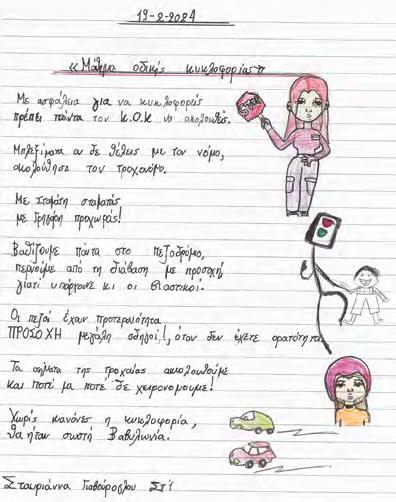 19-2-2024
«Μάθημα οδικής κυκλοφορίας»
Με ασφάλεια για να κυκλοφορείς
πρέπει πάντα τον Κ.Ο.Κ να ακολουθείς.
STOP
Μπλεξίματα αν δε θέλεις με τον νόμο,
ακολούθησε τον τροχονόμο.
Με Σταμάτη σταματάς
με Γρηγόρη προχωράς!
Βαδίζουμε πάντα στο πεζοδρόμιο,
περνούμε από τη διάβαση με προσοχή,
γιατί υπάρχουνε κι οι βιαστικοί.
Οι πεζοί έχουν προτεραιότητα
ΠΡΟΣΟΧΗ μεγάλη οδηγοί!, όταν δεν έχετε ορατότητα.
Τα σήματα της τροχαίας ακολουθούμε
και ποτέ μα ποτέ δε χειρονομούμε!
Χωρίς κανόνες η κυκλοφορία,
θα ήταν σωστή Βαβυλωνία.
Σταυριάννα ΣΤ'1